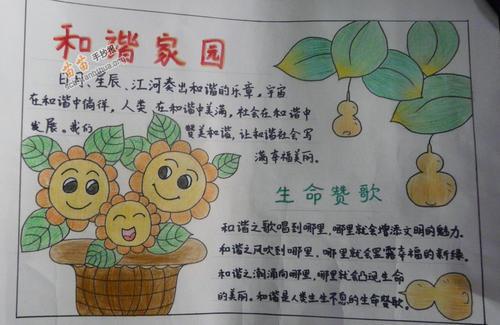 和谐家园
苗苗手抄报
日月、星辰、江河奏出和谐的乐章，宇宙
在和谐中徜徉，人类在和谐中美满，社会在和谐中
发展。我们 赞美和谐，让和谐社会写
满幸福美丽。
生命赞歌
和谐之歌唱到哪里，哪里就会增添文明的魅力。
和谐之风吹到哪里，哪里就会显露幸福的新绿。
和谐之潮涌向哪里，哪里就会凸现生命
的美丽。和谐是人类生生不息的生命赞歌。